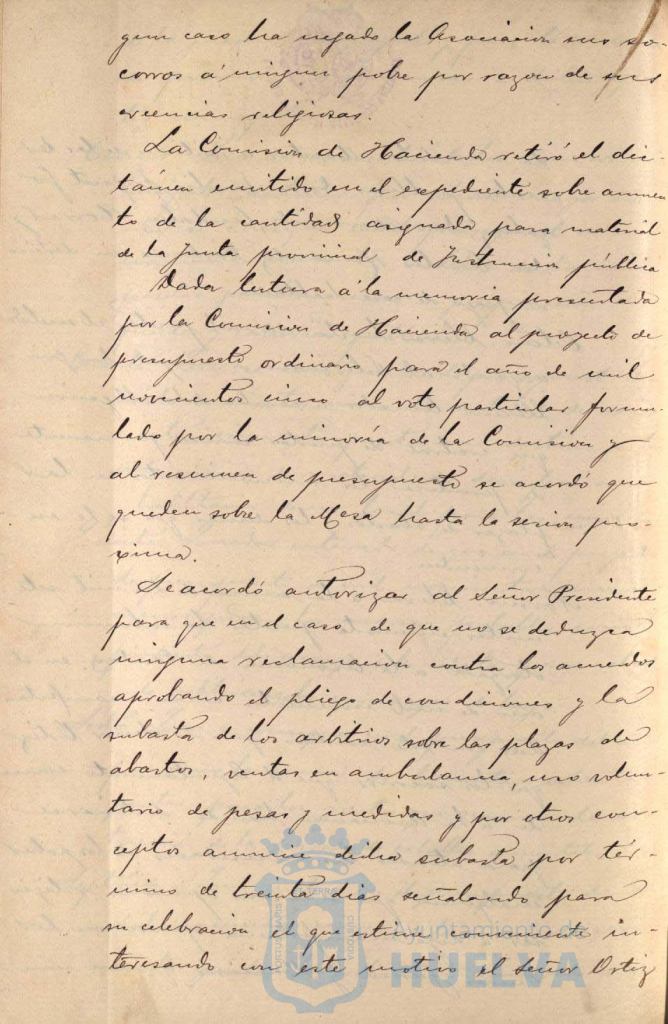 gun caso ha negado la Asociacion sus so-
corros á ningun pobre por razon de sus
creencias religiosas.
La Comision de Hacienda retiró el dic-
támen emitido en el expediente sobre aumen
to de la cantidad asignada para material
de la Junta provincial de Instruccion pública
Dada lectura á la memoria presentada
por la Comision de Hacienda al proyecto de
presupuesto ordinario para el año de mil
novecientos cinco al voto particular formu-
lado por la minoría de la Comision y
al resumen de presupuesto se acordó que
queden sobre la Mesa hasta la sesion pró-
xima.
Se acordó autorizar al Señor Presidente
para que en el caso de que no se deduzca
ninguna reclamacion contra los acuerdos
aprobando el pliego de condiciones y la
subasta de los arbitrios sobre las plazas de
abastos, ventas en ambulancia, uso volun-
tario de pesas y medidas y por otros con-
ceptos anuncie dicha subasta por tér-
mino de treinta dias señalando para
su celebracion el que estime conveniente in-
teresando con este motivo el Señor Ortiz
Ayuntamiento de
HUELVA